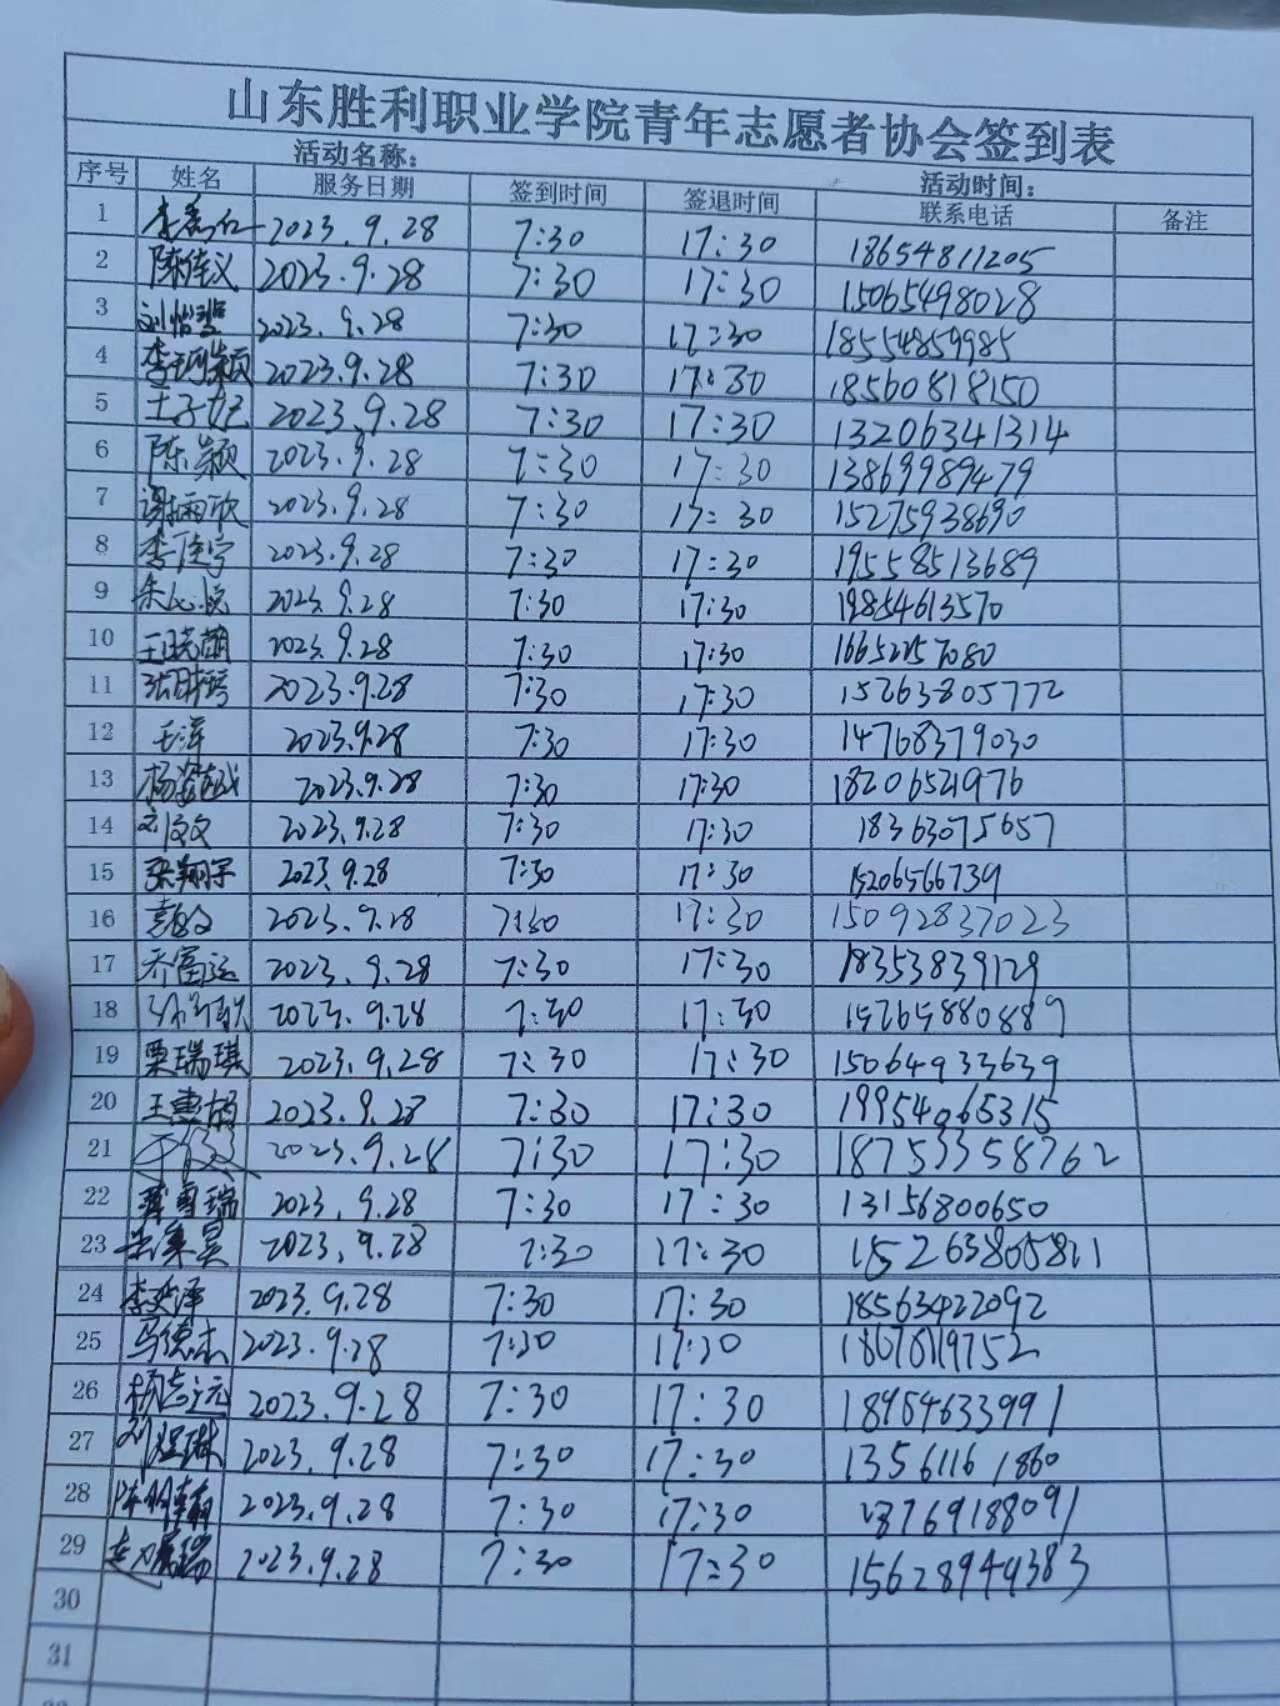 山东胜利职业学院青年志愿者协会签到表
活动名称： 活动时间：
序号 姓名 服务日期 签到时间 签退时间 联系电话 备注
1 2023.9.28 7:30 17:30 18654811205
2 陈佳义 2023.9.28 7:30 17:30 15065498028
3 刘怡 2023.9.28 7:30 17:30 18554859985
4 李珂颖 2023.9.28 7:30 17:30 18560818150
5 王子妃 2023.9.28 7:30 17:30 13206341314
6 陈颖 2023.9.28 7:30 17:30 13869989479
7 谢雨欣 2023.9.28 7:30 17:30 15275938690
8 李佳宁 2023.9.28 7:30 17:30 19558513689
9 朱心悦 2023.9.28 7:30 17:30 19854613570
10 王晓萌 2023.9.28 7:30 17:30
11 2023.9.28 7:30 17:30 15263805772
12 毛洋 2023.9.28 7:30 17:30 14768379030
13 2023.9.28 7:30 17:30 18206521976
14 刘文文 2023.9.28 7:30 17:30 18363075657
15 张翔宇 2023.9.28 7:30 17:30 15206566739
16 2023.9.28 7:30 17:30 15092837023
17 乔富运 2023.9.28 7:30 17:30 18353839129
18 2023.9.28 7:30 17:30 15265880889
19 栗瑞琪 2023.9.28 7:30 17:30 15064933639
20 王惠 2023.9.28 7:30 17:30 19954065315
21 2023.9.28 7:30 17:30 18753358762
22 龚雪瑞 2023.9.28 7:30 17:30 13156800650
23 昊 2023.9.28 7:30 17:30 15263805811
24 李延泽 2023.9.28 7:30 17:30 18563422092
25 马德杰 2023.9.28 7:30 17:30
26 杨志远 2023.9.28 7:30 17:30 18954633991
27 刘煜琳 2023.9.28 7:30 17:30 13561161860
28 2023.9.28 7:30 17:30
29 2023.9.28 7:30 17:30 15628944383
30
31